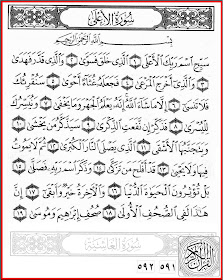 سُورَةُ الأَعْلَى
بِسْمِ اللَّهِ الرَّحْمَنِ الرَّحِيمِ
سَبِّحِ اسْمَ رَبِّكَ الأَعْلَى ١ الَّذِي خَلَقَ فَسَوَّى ٢ وَالَّذِي قَدَّرَ فَهَدَى
٣ وَالَّذِي أَخْرَجَ الْمَرْعَى ٤ فَجَعَلَهُ غُثَاءً أَحْوَى ٥ سَنُقْرِئُكَ
فَلَا تَنسَى ٦ إِلَّا مَا شَاءَ اللَّهُ إِنَّهُ يَعْلَمُ الْجَهْرَ وَمَا يَخْفَى ٧ وَنُيَسِّرُكَ
لِلْيُسْرَى ٨ فَذَكِّرْ إِن نَّفَعَتِ الذِّكْرَى ٩ سَيَذَّكَّرُ مَن يَخْشَى ١٠
وَيَتَجَنَّبُهَا الأَشْقَى ١١ الَّذِي يَصْلَى النَّارَ الْكُبْرَى ١٢ ثُمَّ لَا يَمُوتُ
فِيهَا وَلَا يَحْيَى ١٣ قَدْ أَفْلَحَ مَن تَزَكَّى ١٤ وَذَكَرَ اسْمَ رَبِّهِ فَصَلَّى ١٥
بَلْ تُؤْثِرُونَ الْحَيَاةَ الدُّنْيَا ١٦ وَالآخِرَةُ خَيْرٌ وَأَبْقَى ١٧ إِنَّ
هَذَا لَفِي الصُّحُفِ الأُولَى ١٨ صُحُفِ إِبْرَاهِيمَ وَمُوسَى ١٩
سُورَةُ الْغَاشِيَةِ
٥٩١ ٥٩٢